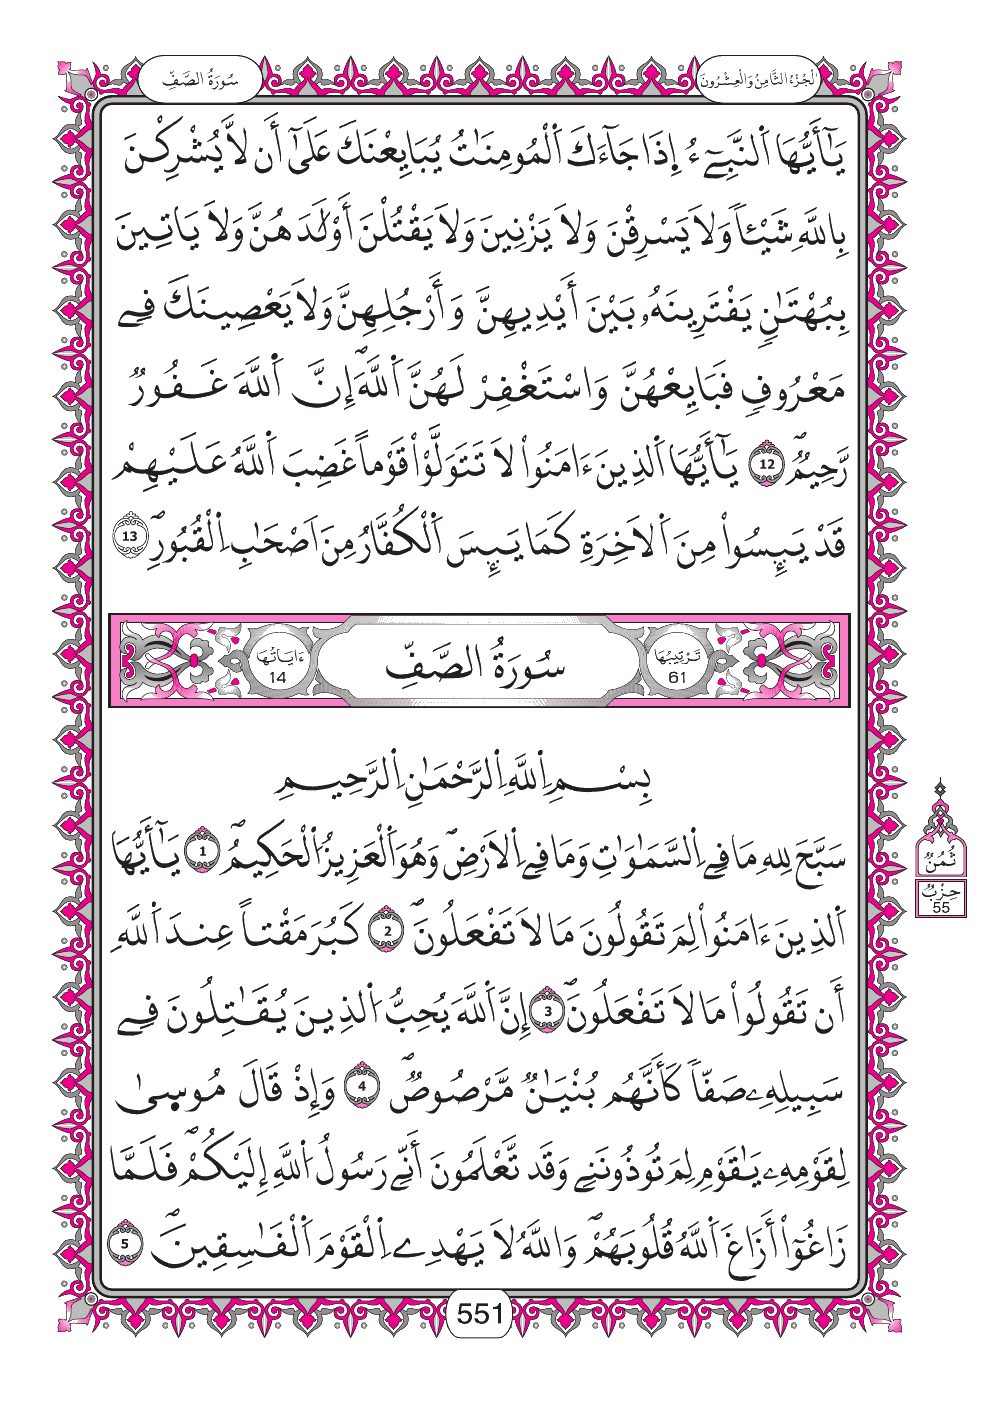 سُورَةُ الصَّفِّ
اَلْجُزْءُ الثَّامِنُ وَالْعِشْرُونَ
يَٰٓأَيُّهَا اَلنَّبِےٓءُ اِ۪ذَا جَآءَكَ اَلْمُومِنَٰتُ يُبَايِعْنَكَ عَلَىٰٓ أَن لَّا يُشْرِكْنَ
بِاللَّهِ شَيْـٔاٗ وَلَا يَسْرِقْنَ وَلَا يَزْنِينَ وَلَا يَقْتُلْنَ أَوْلَٰدَهُنَّ وَلَا يَاتِينَ
بِبُهْتَٰنٖ يَفْتَرِينَهُۥ بَيْنَ أَيْدِيهِنَّ وَأَرْجُلِهِنَّ وَلَا يَعْصِينَكَ فِے
مَعْرُوفٖ فَبَايِعْهُنَّ وَاسْتَغْفِرْ لَهُنَّ اَللَّهَۖ إِنَّ اَللَّهَ غَفُورٞ
رَّحِيمٞۖ 12 يَٰٓأَيُّهَا اَلذِينَ ءَامَنُواْ لَا تَتَوَلَّوْاْ قَوْماً غَضِبَ اَللَّهُ عَلَيْهِمْ
قَدْ يَئِسُواْ مِنَ اَلَاخِرَةِ كَمَا يَئِسَ اَلْكُفَّارُ مِنَ اَصْحَٰبِ اِلْقُبُورِۖ 13
تَرْتِيبُهَا 61
سُورَةُ الصَّفِّ
ءَايَاتُهَا 14
بِسْمِ اِللَّهِ اِلرَّحْمَٰنِ اِلرَّحِيمِ
سَبَّحَ لِلهِ مَا فِے اِلسَّمَٰوَٰتِ وَمَا فِے اِلَارْضِۖ وَهُوَ اَلْعَزِيزُ اُلْحَكِيمُۖ 1 يَٰٓأَيُّهَا
اَلذِينَ ءَامَنُواْ لِمَ تَقُولُونَ مَا لَا تَفْعَلُونَۖ 2 كَبُرَ مَقْتاً عِندَ اَللَّهِ
أَن تَقُولُواْ مَا لَا تَفْعَلُونَۖ 3 إِنَّ اَللَّهَ يُحِبُّ اُلذِينَ يُقَٰتِلُونَ فِے
سَبِيلِهِۦ صَفّاٗ كَأَنَّهُم بُنْيَٰنٞ مَّرْصُوصٞۖ 4 وَإِذْ قَالَ مُوسَىٰ
لِقَوْمِهِۦ يَٰقَوْمِ لِمَ تُوذُونَنِے وَقَد تَّعْلَمُونَ أَنِّے رَسُولُ اُللَّهِ إِلَيْكُمْۖ فَلَمَّا
زَاغُوٓاْ أَزَاغَ اَللَّهُ قُلُوبَهُمْۖ وَاللَّهُ لَا يَهْدِے اِلْقَوْمَ اَلْفَٰسِقِينَۖ 5
ثُمُنٌ
حِزْبٌ
55
551